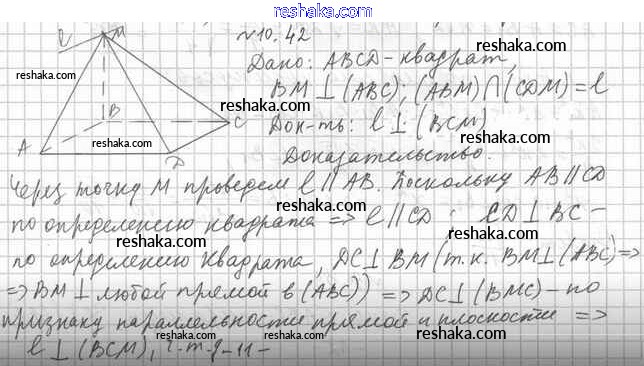 reshaka.com
№10.42
Дано: ABCD-квадрат,
BM⊥(ABC); (ABM)∩(CDM)=l
Док-ть: l⊥(BCM)
Доказательство.
l M
B C
A D
Через точку M проведем l∥AB. Поскольку AB∥CD
по определению квадрата ⇒ l∥CD. CD⊥BC -
по определению квадрата, DC⊥BM (т.к. BM⊥(ABC) ⇒
⇒ BM⊥ любой прямой в (ABC)) ⇒ DC⊥(BMC) - по
признаку параллельности прямой и плоскости ⇒
l⊥(BCM), ч-т-д-
reshaka.com
reshaka.com
reshaka.com
reshaka.com
reshaka.com
reshaka.com
reshaka.com
reshaka.com
reshaka.com
reshaka.com
reshaka.com
reshaka.com